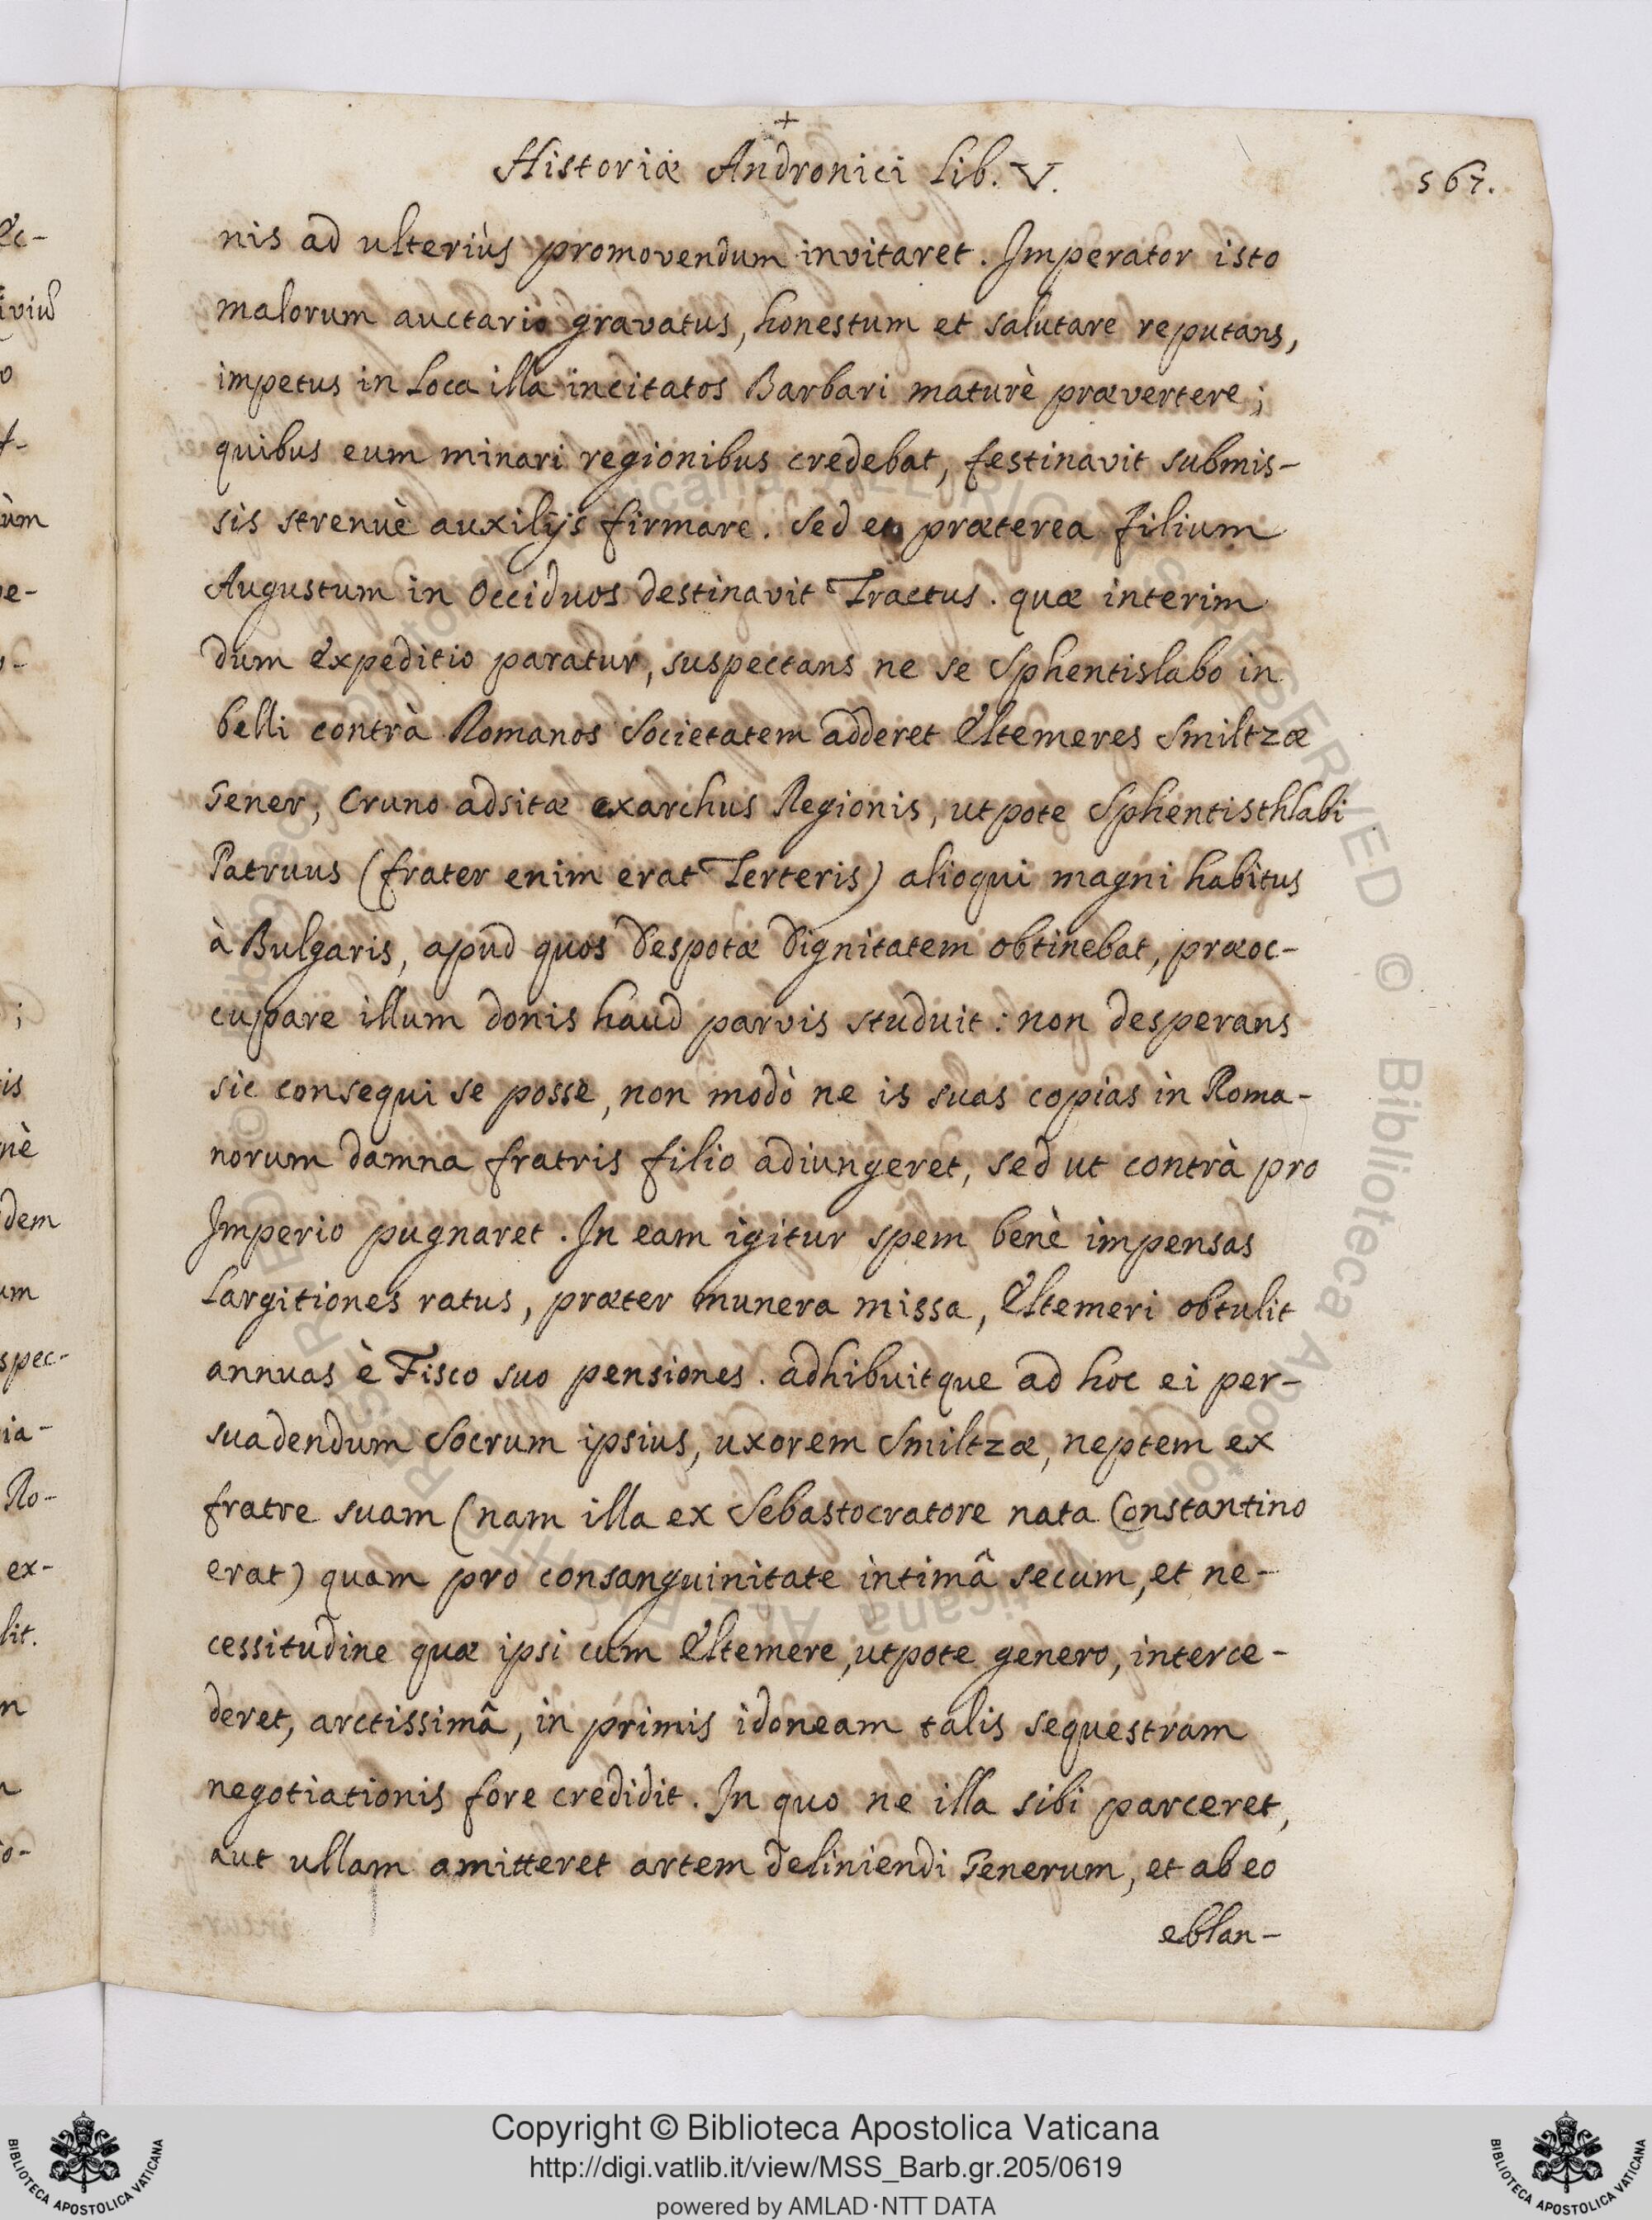 +
Historiæ Andronici Lib. V.
567.
nis ad ulteriùs promovendum invitaret. Imperator isto
malorum auctario gravatus, honestum et salutare reputans,
impetus in Loca illa incitatos Barbari maturè prævertere;
quibus eum minari regionibus credebat, festinavit submis-
sis strenuè auxilijs firmare. Sed et præterea filium
Augustum in Occiduos destinavit Tractus. quæ interim
dum Expeditio paratur, suspectans ne se Sphentislabo in
belli contrà Romanos Societatem adderet Eltemeres Smiltzæ
Gener, Cruno adsitæ exarchus Regionis, utpote Sphentisthlabi
Patruus (frater enim erat Terteris) alioqui magni habitus
à Bulgaris, apud quos Despotæ Dignitatem obtinebat, præoc-
cupare illum donis haud parvis studuit: non desperans
sic consequi se posse, non modò ne is suas copias in Roma-
norum damna fratris filio adiungeret, sed ut contrà pro
Imperio pugnaret. In eam igitur spem benè impensas
Largitiones ratus, præter munera missa, Eltemeri obtulit
annuas è Fisco suo pensiones. adhibuitque ad hoc ei per-
suadendum Socrum ipsius, uxorem Smiltzæ, neptem ex
fratre suam (nam illa ex Sebastocratore nata Constantino
erat) quam pro consanguinitate intimâ secum, et ne-
cessitudine quæ ipsi cum Eltemere, utpote genero, interce-
deret, arctissimâ, in primis idoneam talis sequestram
negotiationis fore credidit. In quo ne illa sibi parceret,
aut ullam amitteret artem deliniendi Generum, et ab eo
eblan-
Copyright © Biblioteca Apostolica Vaticana
http://digi.vatlib.it/view/MSS_Barb.gr.205/0619
powered by AMLAD·NTT DATA
BIBLIOTECA APOSTOLICA VATICANA
BIBLIOTECA APOSTOLICA VATICANA